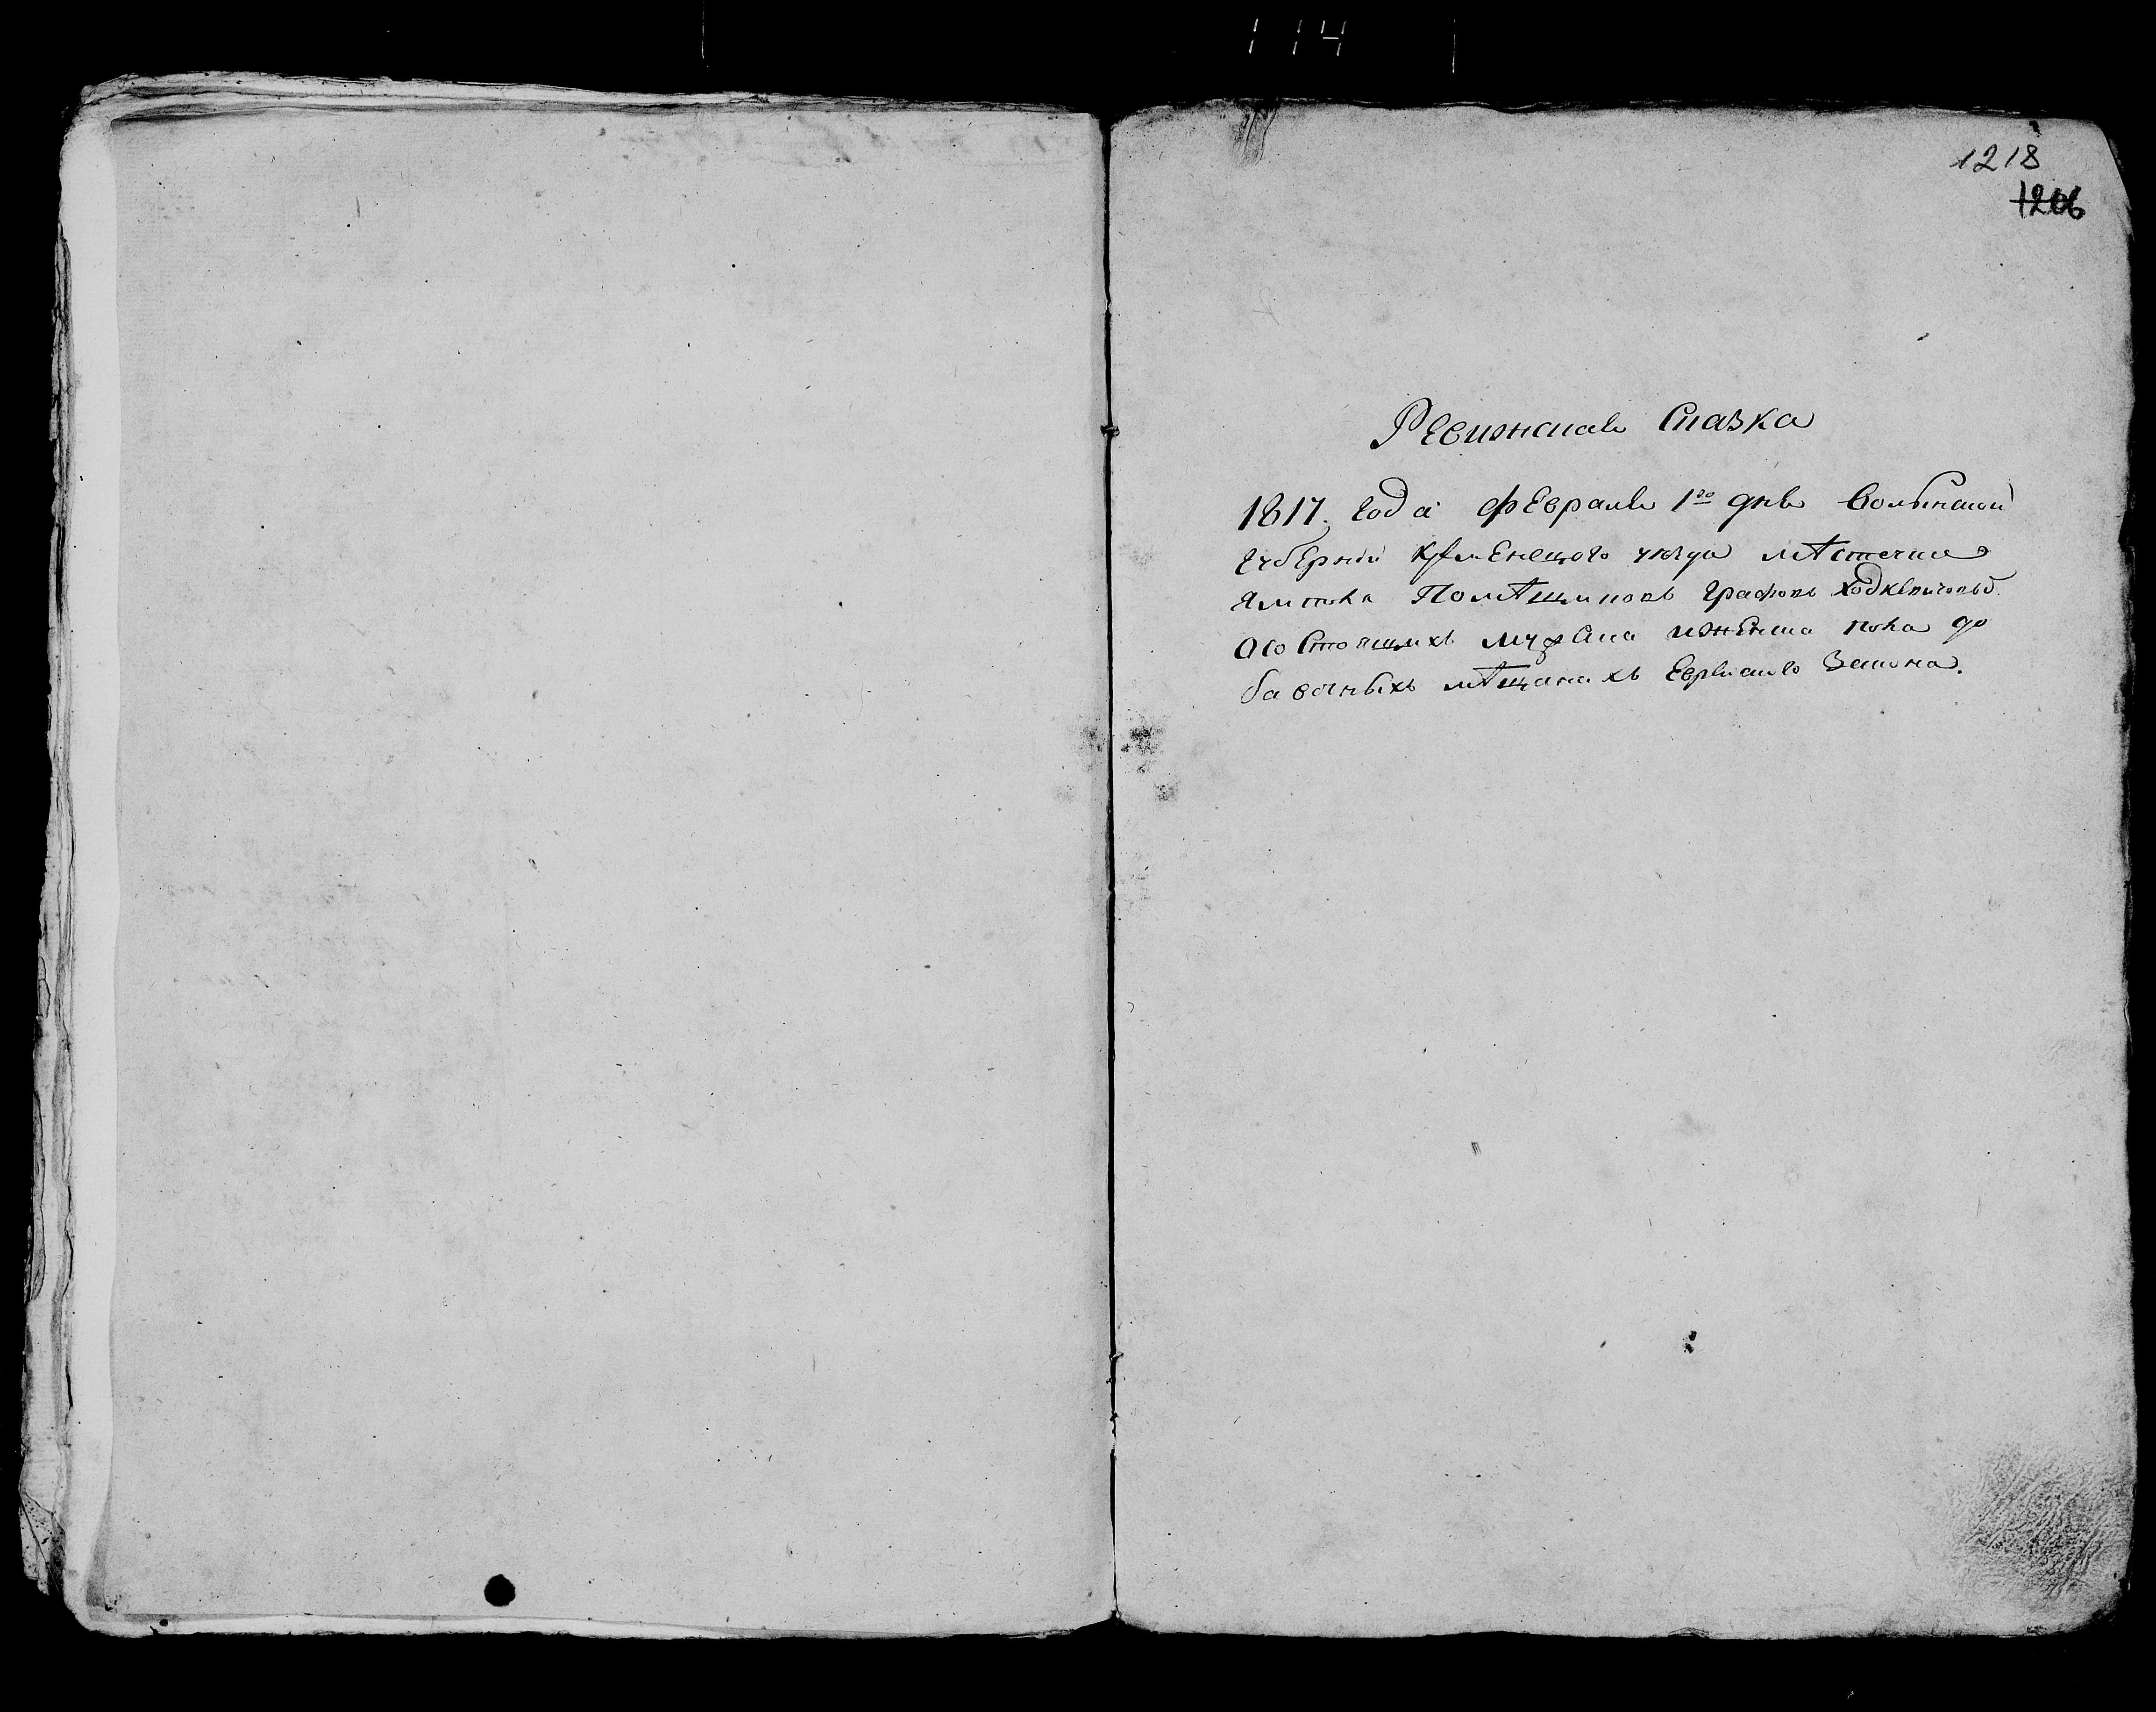 114
1218
1206
Ревизская Сказка
1817. года февраля 1го дня Волынской
губернии кременецкого уезда мѣстечка
Ямполя Помѣщиковъ графовъ Ходкевичовъ
О состоящихъ мужеска и женска пола до
бавочныхъ мѣщанахъ Еврейского Закона.